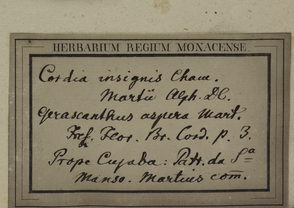 HERBARIUM REGIUM MONACENSE
Cordia insignis Cham.
Martii Alph. DC.
Gerascanthus aspera Mart.
Flor. Br. Cord. p. 3.
Prope Cujaba: Patr. da Sa
Manso. Martius com.